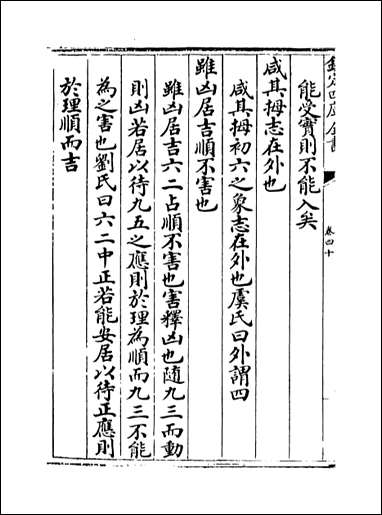 欽定四庫全書
卷四十
能受實則不能入矣
咸其拇志在外也
咸其拇初六之象志在外也虞氏曰外謂四
雖凶居吉順不害也
雖凶居吉六二占順不害也害釋凶也隨九三而動
則凶若居以待九五之應則於理為順而九三不能
為之害也劉氏曰六二中正若能安居以待正應則
於理順而吉